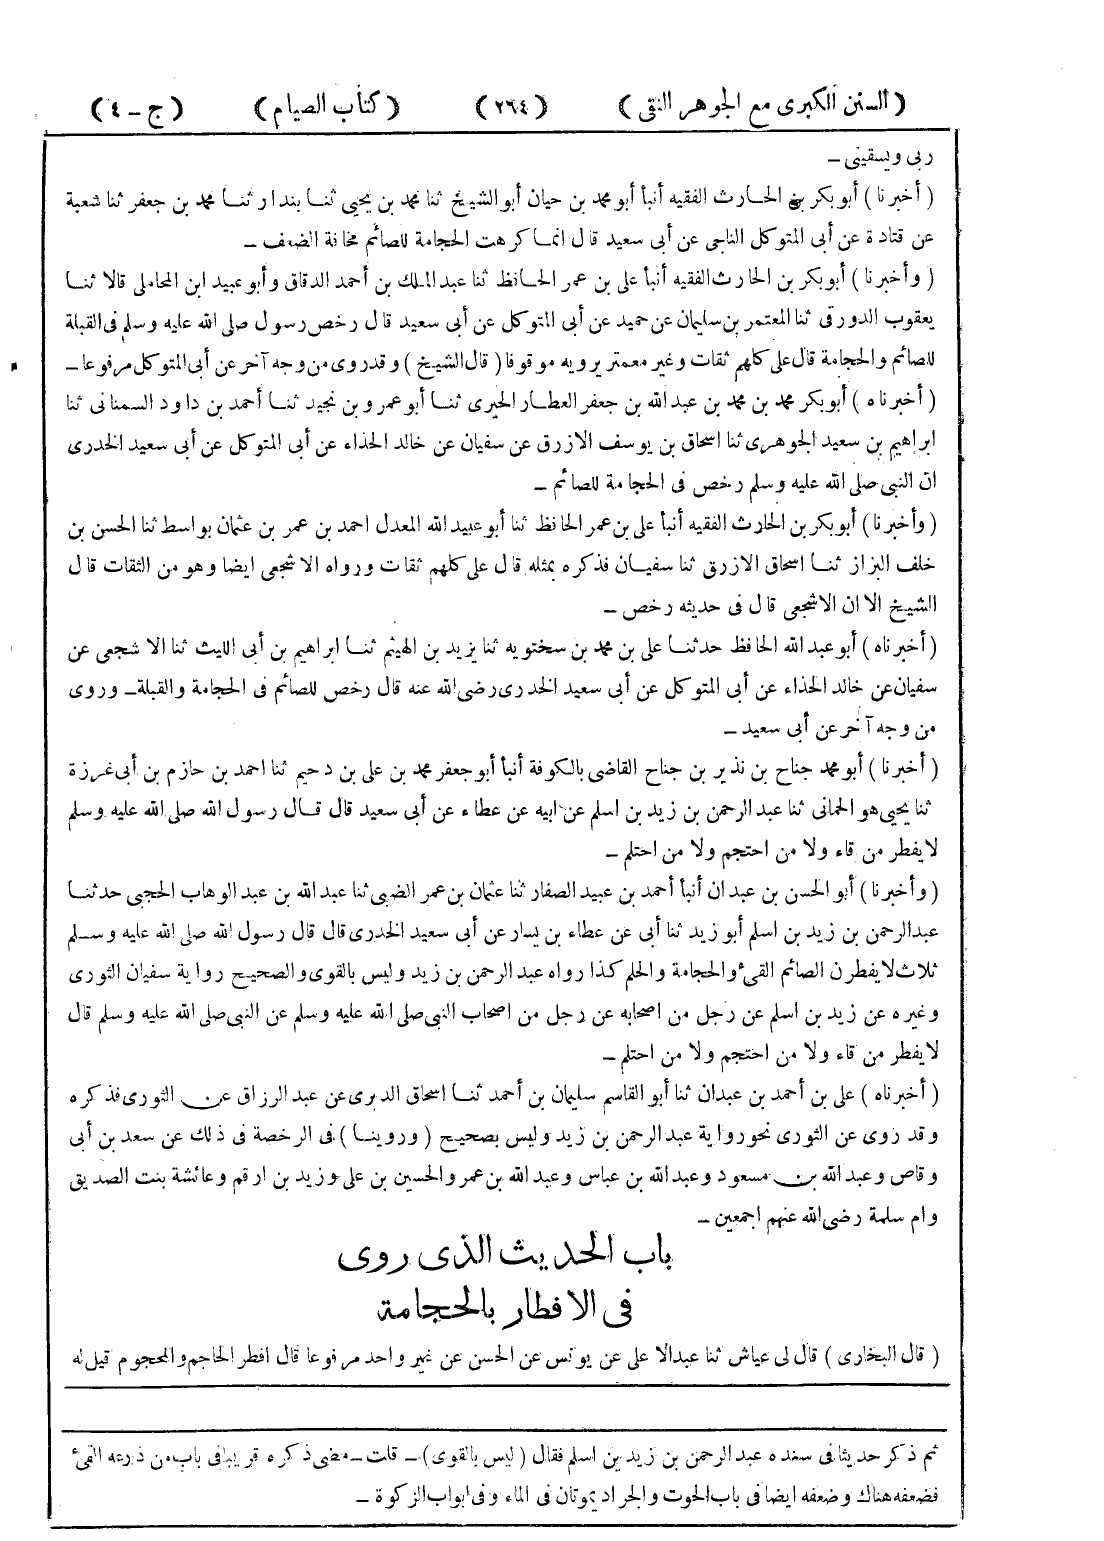 ( السنن الكبرى مع الجوهر النقى ) ( ٢٦٤ ) ( كتاب الصيام ) ( ج ـ ٤ )
ربى ويسقينى ـ
( أخبرنا ) أبو بكر بن الحارث الفقيه أنبأ أبو محمد بن حيان أبو الشيخ ثنا محمد بن يحيى ثنا بندار ثنا محمد بن جعفر ثنا شعبة
عن قتادة عن أبى المتوكل الناجى عن أبى سعيد قال انما كرهت الحجامة للصائم مخافة الضعف ـ
( وأخبرنا ) أبو بكر بن الحارث الفقيه أنبأ على بن عمر الحافظ ثنا عبد الملك بن أحمد الدقاق وأبو عبيد ابن المحاملى قالا ثنا
يعقوب الدورقى ثنا المعتمر بن سليمان عن حميد عن أبى المتوكل عن أبى سعيد قال رخص رسول صلى الله عليه وسلم فى القبلة
للصائم والحجامة قال على كلهم ثقات وغير معمتر يرويه موقوفا ( قال الشيخ ) وقد روى من وجه آخر عن أبى المتوكل مرفوعا ـ
( أخبرناه ) أبو بكر محمد بن محمد بن عبد الله بن جعفر العطار الحيرى ثنا أبو عمرو بن نجيد ثنا أحمد بن داود السمنانى ثنا
ابراهيم بن سعيد الجوهرى ثنا اسحاق بن يوسف الازرق عن سفيان عن خالد الحذاء عن أبى المتوكل عن أبى سعيد الخدرى
ان النبى صلى الله عليه وسلم رخص فى الحجامة للصائم ـ
( وأخبرنا ) أبو بكر بن الحارث الفقيه أنبأ على بن عمر الحافظ ثنا أبو عبيد الله المعدل احمد بن عمر بن عثمان بواسط ثنا الحسن بن
خلف البزاز ثنا اسحاق الازرق ثنا سفيان فذكره بمثله قال على كلهم ثقات ورواه الاشجعى ايضا وهو من الثقات قال
الشيخ الا ان الاشجعى قال فى حديثه رخص ـ
( أخبرناه ) أبو عبد الله الحافظ حدثنا على بن محمد بن سختويه ثنا يزيد بن الهيثم ثنا ابراهيم بن أبى الليث ثنا الاشجعى عن
سفيان عن خالد الحذاء عن أبى المتوكل عن أبى سعيد الخدرى رضى الله عنه قال رخص للصائم فى الحجامة والقبلة ـ وروى
من وجه آخر عن أبى سعيد ـ
( أخبرنا ) أبو محمد جناح بن نذير بن جناح القاضى بالكوفة أنبأ أبو جعفر محمد بن على بن دحيم ثنا احمد بن حازم بن أبى غرزة
ثنا يحيى هو الحمانى ثنا عبد الرحمن بن زيد بن اسلم عن ابيه عن عطاء عن أبى سعيد قال قال رسول الله صلى الله عليه وسلم
لا يفطر من قاء ولا من احتجم ولا من احتلم ـ
( وأخبرنا ) أبو الحسن بن عبدان أنبأ أحمد بن عبيد الصفار ثنا عثمان بن عمر الضبى ثنا عبد الله بن عبد الوهاب الحجبى حدثنا
عبد الرحمن بن زيد بن اسلم أبو زيد ثنا أبى عن عطاء بن يسار عن أبى سعيد الخدرى قال قال رسول الله صلى الله عليه وسلم
ثلاث لا يفطرن الصائم القئ والحجامة والحلم كذا رواه عبد الرحمن بن زيد وليس بالقوى والصحيح رواية سفيان الثورى
وغيره عن زيد بن اسلم عن رجل من اصحابه عن رجل من اصحاب النبى صلى الله عليه وسلم عن النبى صلى الله عليه وسلم قال
لا يفطر من قاء ولا من احتجم ولا من احتلم ـ
( أخبرناه ) على بن أحمد بن عبدان ثنا أبو القاسم سليمان بن أحمد ثنا اسحاق الدبرى عن عبد الرزاق عن الثورى فذكره
وقد روى عن الثورى نحو رواية عبد الرحمن بن زيد وليس بصحيح ( وروينا ) فى الرخصة فى ذلك عن سعد بن أبى
وقاص وعبد الله بن مسعود وعبد الله بن عباس وعبد الله بن عمر والحسين بن على وزيد بن ارقم وعائشة بنت الصديق
وام سلمة رضى الله عنهم اجمعين ـ
باب الحديث الذى روى
فى الافطار بالحجامة
( قال البخارى ) قال لى عياش ثنا عبد الاعلى عن يونس عن الحسن عن غير واحد مرفوعا قال افطر الحاجم والمحجوم قيل له
ثم ذكر حديثا فى سنده عبد الرحمن بن زيد بن اسلم فقال ( ليس بالقوى ) ـ قلت ـ مضى ذكره قريبا فى باب من ذرعه القئ
فضعفه هناك وضعفه ايضا فى باب الحوت والجراد يموتان فى الماء وفى ابواب الزكوة ـ